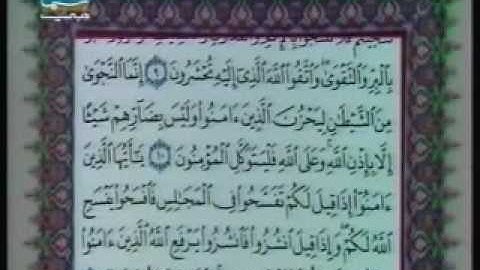 بِالْبِرِّ وَالتَّقْوَىٰ وَاتَّقُوا اللَّهَ الَّذِي إِلَيْهِ تُحْشَرُونَ ۝٩ إِنَّمَا النَّجْوَىٰ
مِنَ الشَّيْطَانِ لِيَحْزُنَ الَّذِينَ ءَامَنُوا وَلَيْسَ بِضَارِّهِمْ شَيْئًا
إِلَّا بِإِذْنِ اللَّهِ وَعَلَى اللَّهِ فَلْيَتَوَكَّلِ الْمُؤْمِنُونَ ۝١٠ يَا أَيُّهَا الَّذِينَ
ءَامَنُوا إِذَا قِيلَ لَكُمْ تَفَسَّحُوا فِي الْمَجَالِسِ فَافْسَحُوا يَفْسَحِ
اللَّهُ لَكُمْ وَإِذَا قِيلَ انْشُزُوا فَانْشُزُوا يَرْفَعِ اللَّهُ الَّذِينَ ءَامَنُوا